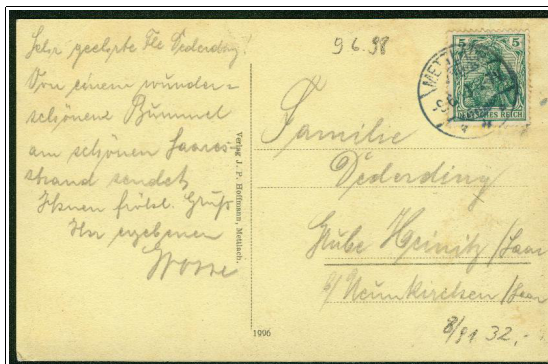 Sehr geehrte Fle Dederding!
Von einem wunder=
schönene Bummel
am schönen Saares=
strand sendet
Ihnen fröhl. Gruß
Ihr ergebener
9 6.98
Verlag J. P. Hoffmann, Mettlach.
1996
5 5
DEUTSCHES REICH
METTLACH
Familie
Dederding
Grube Heinitz /Saar
b/Neunkirchen /Saar
8/91 32,-